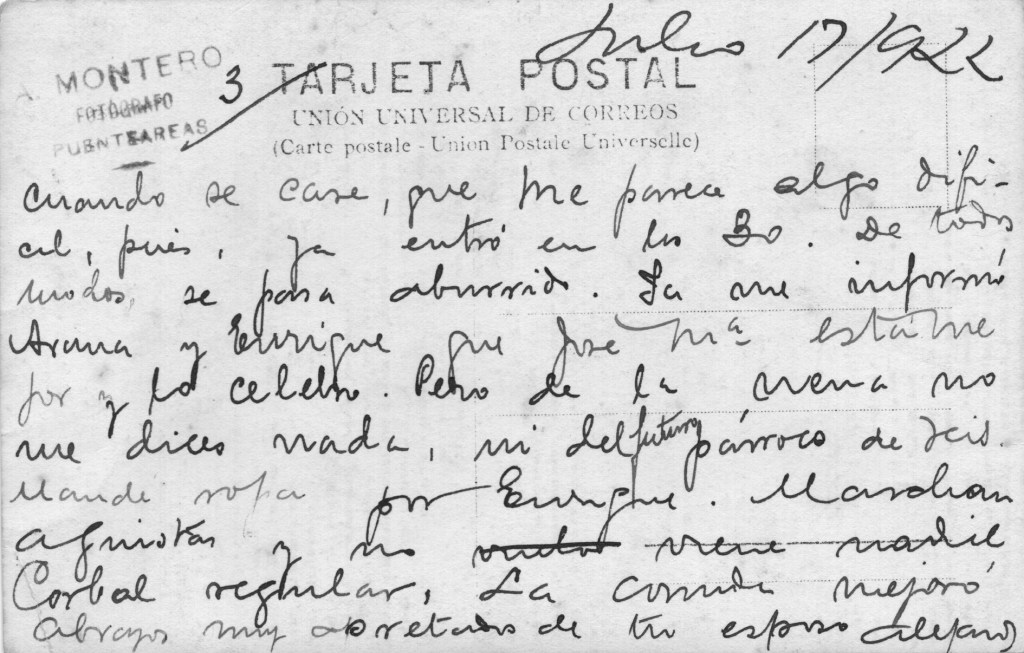 Julio 17/922
A. MONTERO
FOTÓGRAFO
PUENTEAREAS
3
TARJETA POSTAL
UNIÓN UNIVERSAL DE CORREOS
(Carte postale - Union Postale Universelle)
cuando se case, que me parece algo difi-
cil, pues, ya entró en los 30. De todos
modos, se pasa aburrido. Ya me informó
Arana y Enrique que Jose Mª está me
jor y lo celebro. Pero de la nena no
me dices nada, ni del futuro párroco de
Mandé ropa por Enrique. Marchan
agüistas y no viene nadie
Corbal regular, La comida mejoró
Abrazos muy apretados de tu esposo Alejandro